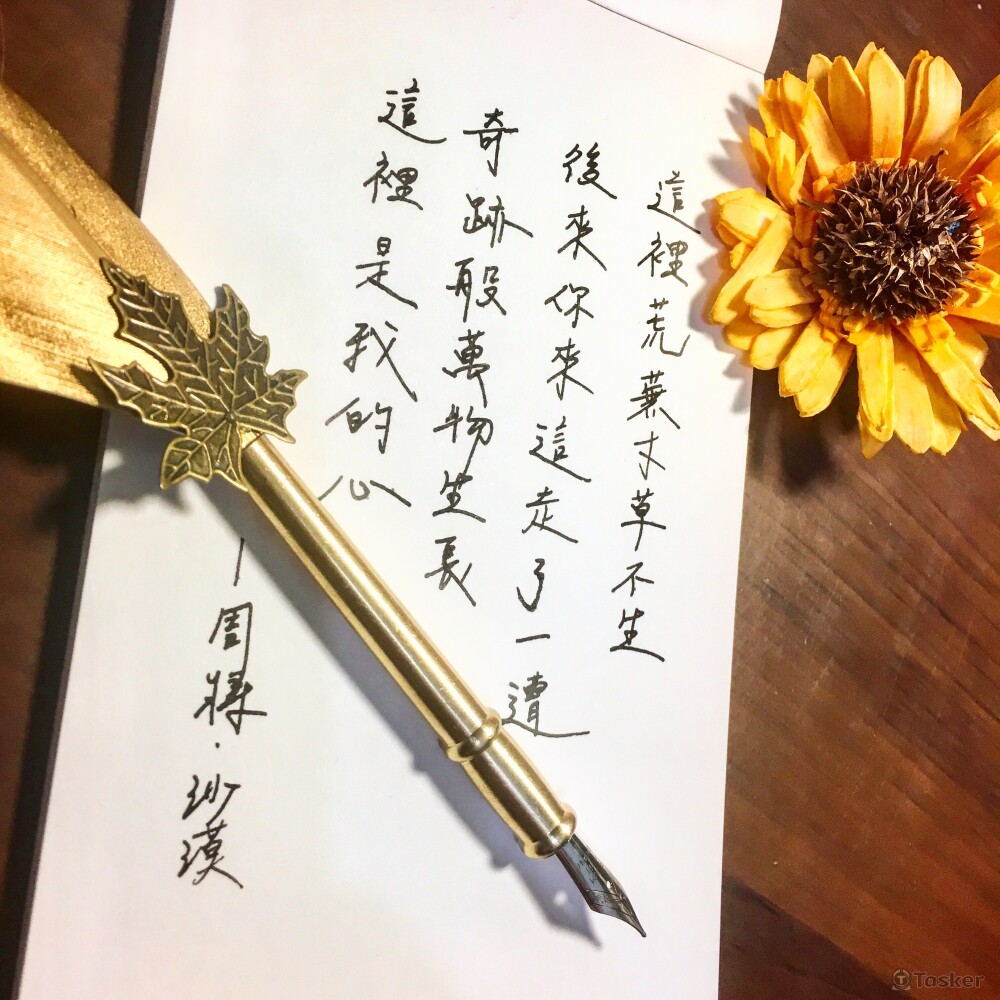 這裡荒蕪寸草不生
後來你來這走了一遭
奇跡般萬物生長
這裡是我的心
—周牍·沙漠
Tasker